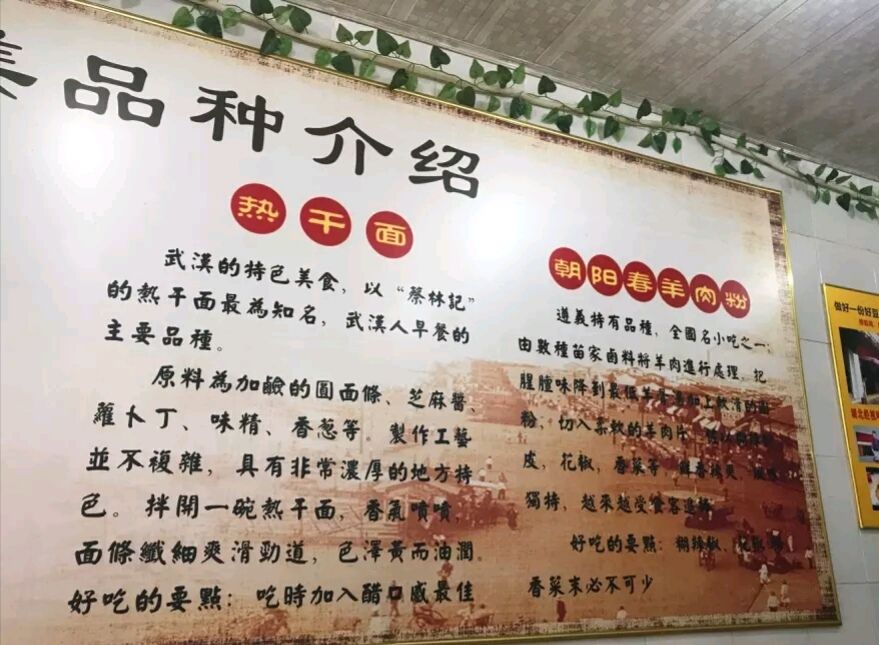 品种介绍
热干面
武漢的特色美食，以“蔡林記”
的熱干面最為知名，武漢人早餐的
主要品種。
原料為加鹼的圓面條、芝麻醬、
蘿卜丁、味精、香葱等。製作工藝
並不複雜，具有非常濃厚的地方特
色。拌開一碗熱干面，香氣噴噴，
面條纖細爽滑勁道，色澤黃而油潤。
好吃的要點：吃時加入醋口感最佳
朝阳春羊肉粉
遵義特有品種，全國名小吃之一，
由數種苗家鹵料將羊肉進行處理，把
腥膻味降到最低羊骨湯加上軟滑的
粉，切入柔軟的羊肉片，
皮，花椒，香菜等，
獨特，越來越受餐客追捧
好吃的要點：糊辣椒、花椒
香菜末必不可少
做好一份好豆